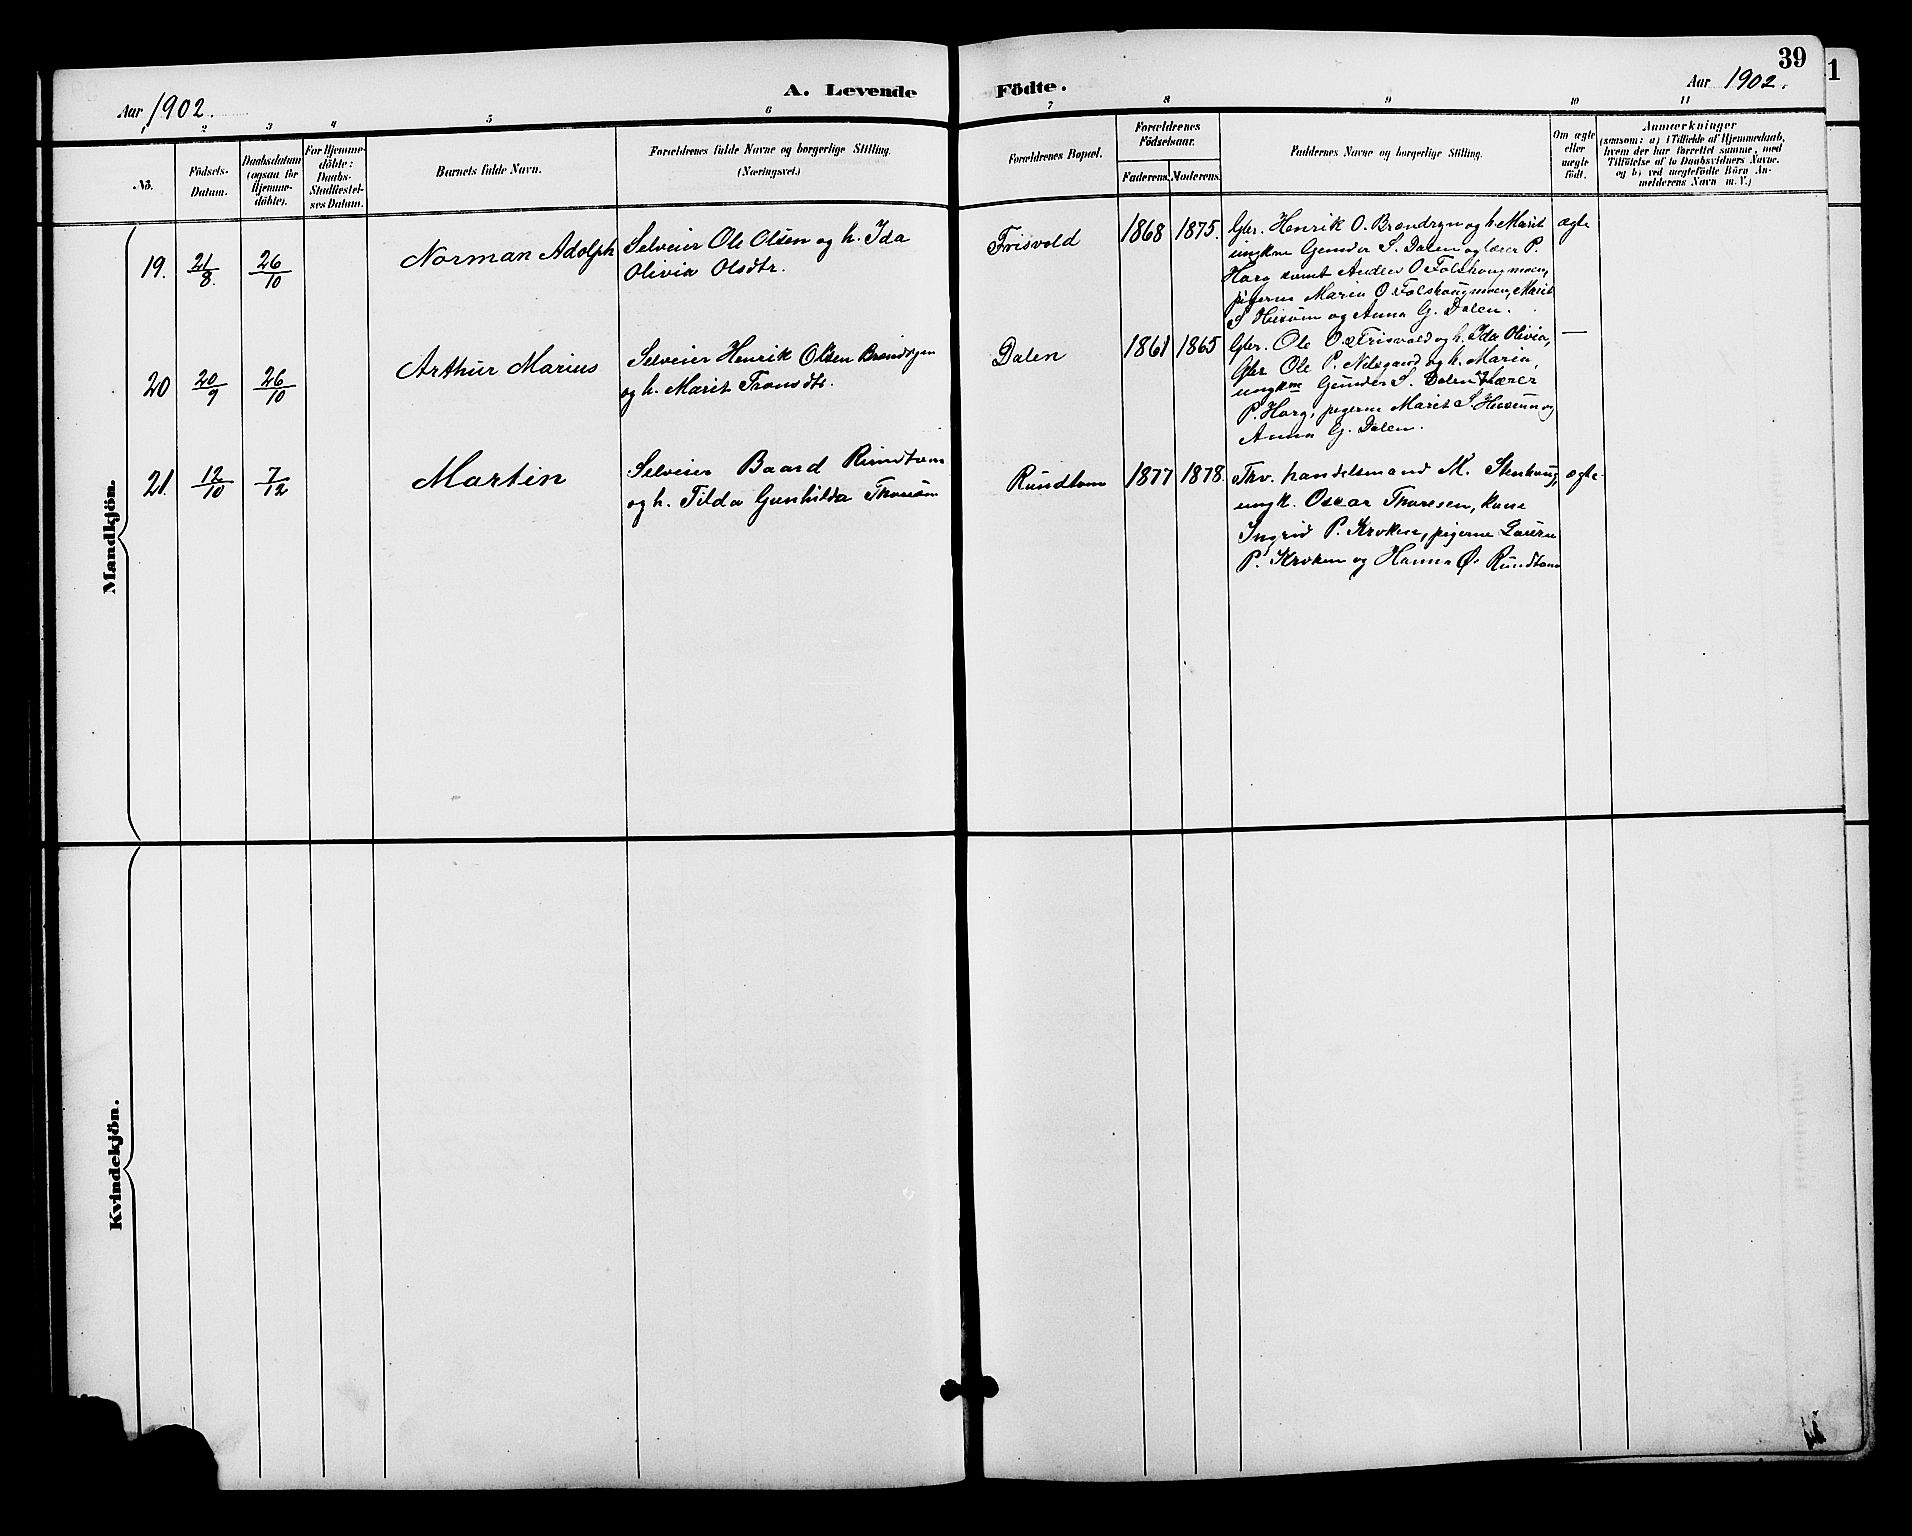 39
1
Aar 1902.
A. Levende
Födte.
Aar 1902.
1 2 3 4 5 6 7 8 9 10 11
No.
Födsels-
Datum.
Daabsdatum
(ogsaa for
Hjemme-
döbte).
For Hjemme-
döbte:
Daabs-
Stadfæstel-
ses Datum.
Barnets fulde Navn.
Forældrenes fulde Navne og borgerlige Stilling.
(Næringsvei.)
Forældrenes Bopæl.
Forældrenes
Födselsaar.
Faderens. Moderens.
Faddernes Navne og borgerlige Stilling.
Om ægte
eller
uægte
födt.
Anmærkninger
(saasom: a) i Tilfælde af Hjemmedaab,
hvem der har forrettet samme, med
Tilföielse af to Daabsvidners Navne.
og b) ved uægtefödte Börn An-
melderens Navn m. V.)
Mandkjön.
19. 21/8. 26/10 Norman Adolph
Selveier Ole Olsen og h. Ida
Olivia Olsdtr.
Frisvold 1868 1875.
Gbr. Henrik O. Brandryn og h. Marit
ungkme Gunder S. Dalen og lærer P.
Harg samt Anders O Folskougmoen,
pigerne Maria O. Folskougmoen, Marit
S Heisum og Anna G. Dalen.
ægte
20 20/9 26/10 Arthur Marius
Selveier Henrik Olsen Brandryen
og h. Marit Tronsdtr.
Dalen 1861 1865
Gbr. Ole O. Frisvold og h. Ida Olivia,
Gbr Ole P. Nilsgaard og h. Maria,
ungkme Gunder S. Dalen og Lærer
P. Harg, pigerne Marit S. Heisum og
Anna G. Dalen.
—
21. 12/10 7/12 Martin
Selveier Baard Rundtom
og h. Tilda Gunhilda
Rundtom 1877 1878.
Fhv. handelsmand M. Stenhoug,
ungk. Oscar Thoresen, kone
Ingrid P. Kroken, pigerne
P. Kroken og Hanna Ø. Rundtom
ægte
Kvindekjön.